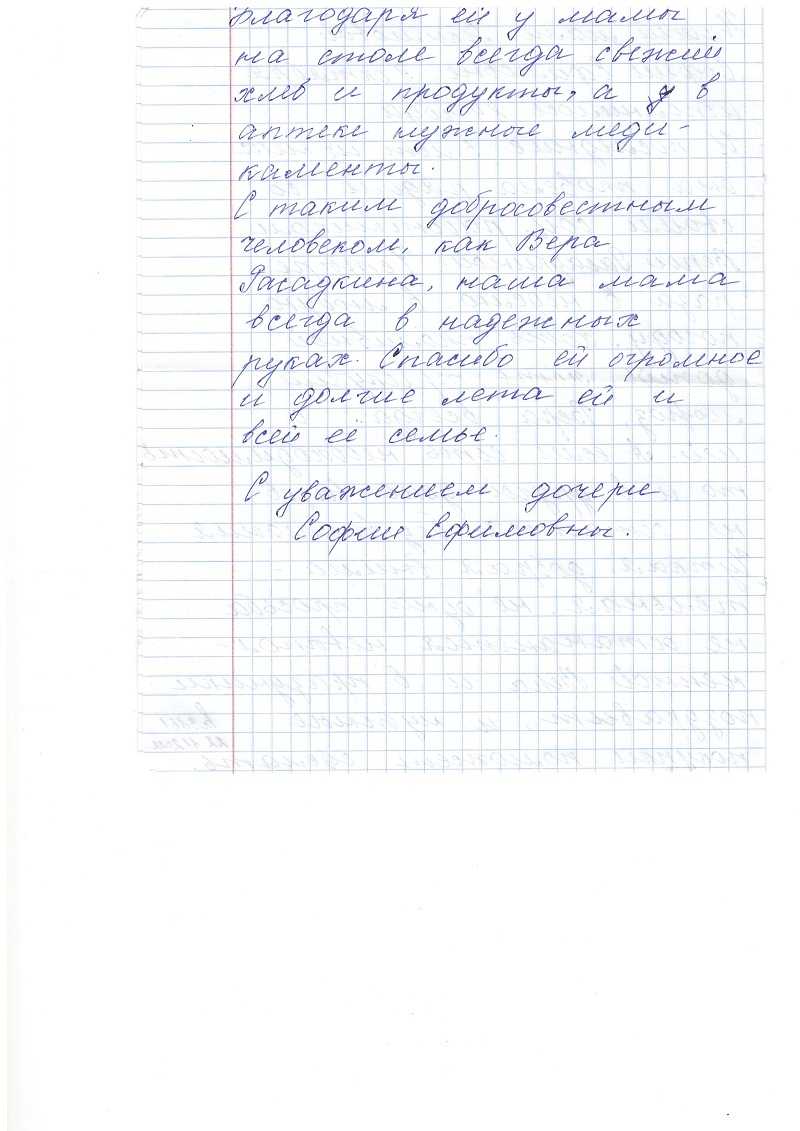 Благодаря ей у мамы
на столе всегда свежий
хлеб и продукты, а в
аптеке нужные меди-
каменты.
С таким добросовестным
человеком, как Вера
Расадкина, наша мама
всегда в надежных
руках. Спасибо ей огромное
и долгие лета ей и
всей её семье.
С уважением дочери
Софии Ефимовны.